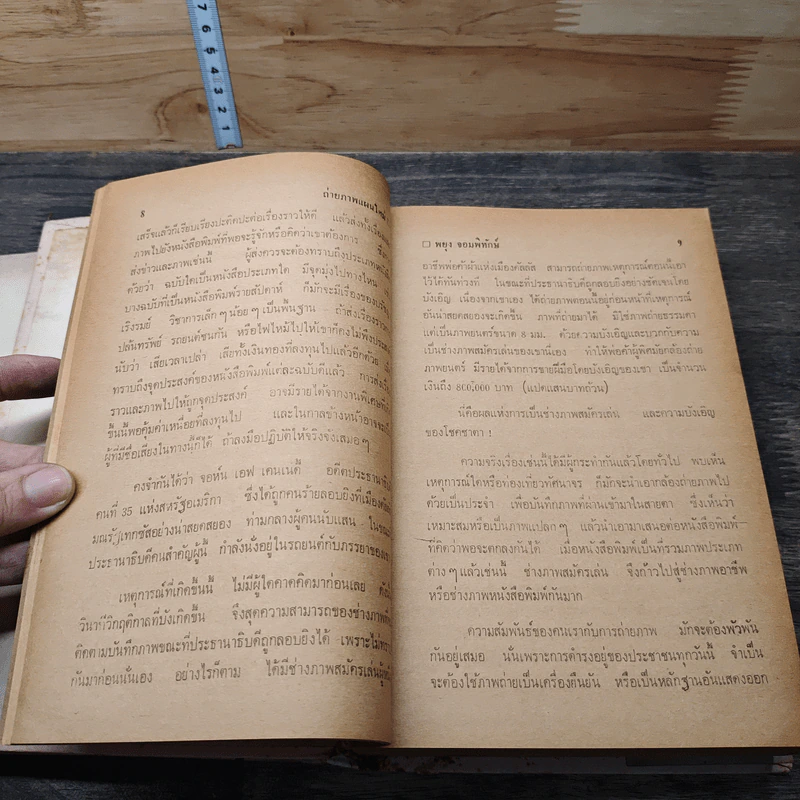 7 6 5 4 3 2 1
8 ถ่ายภาพแผนใหม่
เสร็จแล้วก็เรียบเรียงปะติดปะต่อเรื่องราวให้ดี แล้วส่งทั้งเรื่อง
ภาพไปยังหนังสือพิมพ์ที่พอจะรู้จักหรือคิดว่าเขาต้องการ
ส่งข่าวและภาพเช่นนี้ ผู้ส่งควรจะต้องทราบถึงประเภทหนังสือ
ด้วยว่า ฉบับใดเป็นหนังสือประเภทใด มีจุดมุ่งไปทางไหน
บางฉบับที่เป็นหนังสือพิมพ์รายสัปดาห์ ก็มักจะมีเรื่องของ
เริงรมย์ วิชาการเล็กๆน้อยๆเป็นพื้นฐาน ถ้าส่งเรื่องราว
ปล้นทรัพย์ รถยนต์ชนกัน หรือไฟไหม้ไปให้เขาก็คงไม่พึงประ
นับว่า เสียเวลาเปล่า เสียทั้งเงินทองที่ลงทุนไปแล้วอีกด้วย เมื่อ
ทราบถึงจุดประสงค์ของหนังสือพิมพ์แต่ละฉบับดีแล้ว การส่ง
ราวและภาพไปให้ถูกจุดประสงค์ อาจมีรายได้จากงานพิเศษ
ขึ้นนี้พอคุ้มค่าเหนื่อยที่ลงทุนไป และในกาลข้างหน้าอาจจะ
ผู้ที่มีชื่อเสียงในทางนี้ก็ได้ ถ้าลงมือปฏิบัติให้จริงจังเสมอๆ
คงจำกันได้ว่า จอห์น เอฟ เคนเนดี้ อดีตประธานาธิ
คนที่ 35 แห่งสหรัฐอเมริกา ซึ่งได้ถูกคนร้ายลอบยิงที่เมือง
มณรัฐเทกซัสอย่างน่าสยดสยอง ท่ามกลางผู้คนนับแสน ในขณะ
ประธานาธิบดีคนสำคัญผู้นี้ กำลังนั่งอยู่ในรถยนต์กับภรรยาของ
เหตุการณ์ที่เกิดขึ้นนี้ ไม่มีผู้ใดคาดคิดมาก่อนเลย
วินาทีวิกฤติกาลที่บังเกิดขึ้น จึงสุดความสามารถของช่างภาพ
ติดตามบันทึกภาพขณะที่ประธานาธิบดีถูกลอบยิงได้ เพราะไม่ทราบ
กันมาก่อนนั่นเอง อย่างไรก็ตาม ได้มีช่างภาพสมัครเล่นผู้หนึ่ง
□ พยุง จอมพิทักษ์ 9
อาชีพพ่อค้าผ้าแห่งเมืองดัลลัส สามารถถ่ายภาพเหตุการณ์ตอนนี้เอา
ไว้ได้ทันท่วงที ในขณะที่ประธานาธิบดีถูกลอบยิงอย่างชัดเจนโดย
บังเอิญ เนื่องจากเขาเอง ได้ถ่ายภาพตอนนี้อยู่ก่อนหน้าที่เหตุการณ์
อันน่าสยดสยองจะเกิดขึ้น ภาพที่ถ่ายมาได้ มิใช่ภาพถ่ายธรรมดา
แต่เป็นภาพยนตร์ขนาด 8 มม. ด้วยความบังเอิญและบวกกับความ
เป็นช่างภาพสมัครเล่นของเขานี่เอง ทำให้พ่อค้าผู้พิศมัยกล้องถ่าย
ภาพยนตร์ มีรายได้จากการขายฝีมือโดยบังเอิญของเขา เป็นจำนวน
เงินถึง 800,000 บาท (แปดแสนบาทถ้วน)
นี่คือผลแห่งการเป็นช่างภาพสมัครเล่น และความบังเอิญ
ของโชคชาตา !
ความจริงเรื่องเช่นนี้ได้มีผู้กระทำกันแล้วโดยทั่วไป พบเห็น
เหตุการณ์ใดหรือท่องเที่ยวทัศนาจร ก็มักจะนำเอากล้องถ่ายภาพไป
ด้วยเป็นประจำ เพื่อบันทึกภาพที่ผ่านเข้ามาในสายตา ซึ่งเห็นว่า
เหมาะสมหรือเป็นภาพแปลกๆ แล้วนำเอามาเสนอต่อหนังสือพิมพ์
ที่คิดว่าพอจะตกลงกันได้ เมื่อหนังสือพิมพ์เป็นที่รวมภาพประเภท
ต่างๆแล้วเช่นนี้ ช่างภาพสมัครเล่น จึงก้าวไปสู่ช่างภาพอาชีพ
หรือช่างภาพหนังสือพิมพ์กันมาก
ความสัมพันธ์ของคนเรากับการถ่ายภาพ มักจะต้องพัวพัน
กันอยู่เสมอ นั่นเพราะการดำรงอยู่ของประชาชนทุกวันนี้ จำเป็น
จะต้องใช้ภาพถ่ายเป็นเครื่องยืนยัน หรือเป็นหลักฐานอันแสดงออก